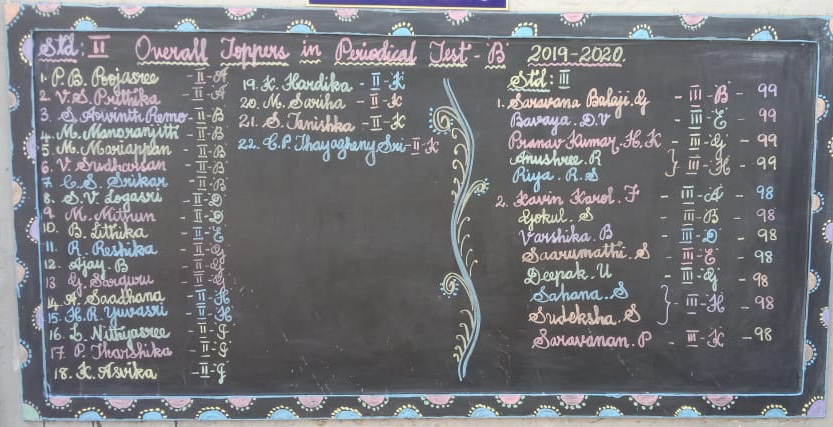 Std: II Overall Toppers in Periodical Test 'B' 2019-2020.
1. P.B. Poojasree - II - A
2. V.S. Prithika - II - A
3. S. Aswinth Remo - II - B
4. M. Manoranjitti - II - B
5. M. Mariappan - II - B
6. V. Sudharsan - II - B
7. C.S. Srikar - II - B
8. S.V. Logasri - II - D
9. M. Mithun - II - D
10. B. Lithika - II - E
11. R. Reshika - II - G
12. Ajay. B - II - G
13. G. Sarguru - II - G
14. A. Saadhana - II - H
15. H.R. Yuvasri - II - H
16. L. Nithyasree - II -
17. P. Tharshika - II -
18. K. Asvika - II -
19. K. Hardika - II - K
20. M. Saviha - II - K
21. S. Tanishka - II - K
22. C.P. Thayagheny Sri - II - K
Std: III
1. Saravana Balaji. G - III - B - 99
Bavaya. D.V - III - E - 99
Pranav Kumar. H.K - III - G - 99
Anushree. R } III - H - 99
Riya. R.S
2. Kavin Karol. F - III - A - 98
Gokul. S - III - B - 98
Varshika. B - III - D - 98
Saarumathi. S - III - E - 98
Deepak. U - III - G - 98
Sahana. S } - III - H - 98
Sudeksha. S
Saravanan. P - III - K - 98